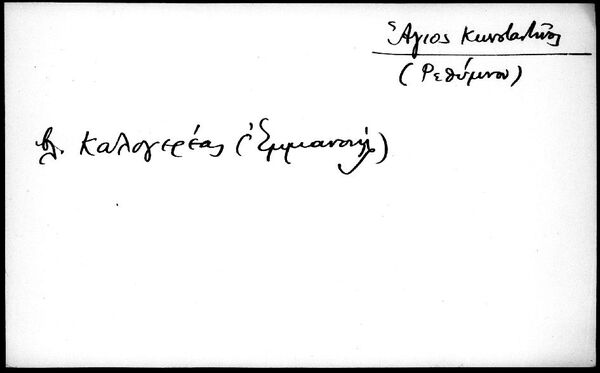 Ἅγιος Κωνσταντῖνος
(Ρεθύμνου)
βλ. Καλογερέας (Ἐμμανουήλ)